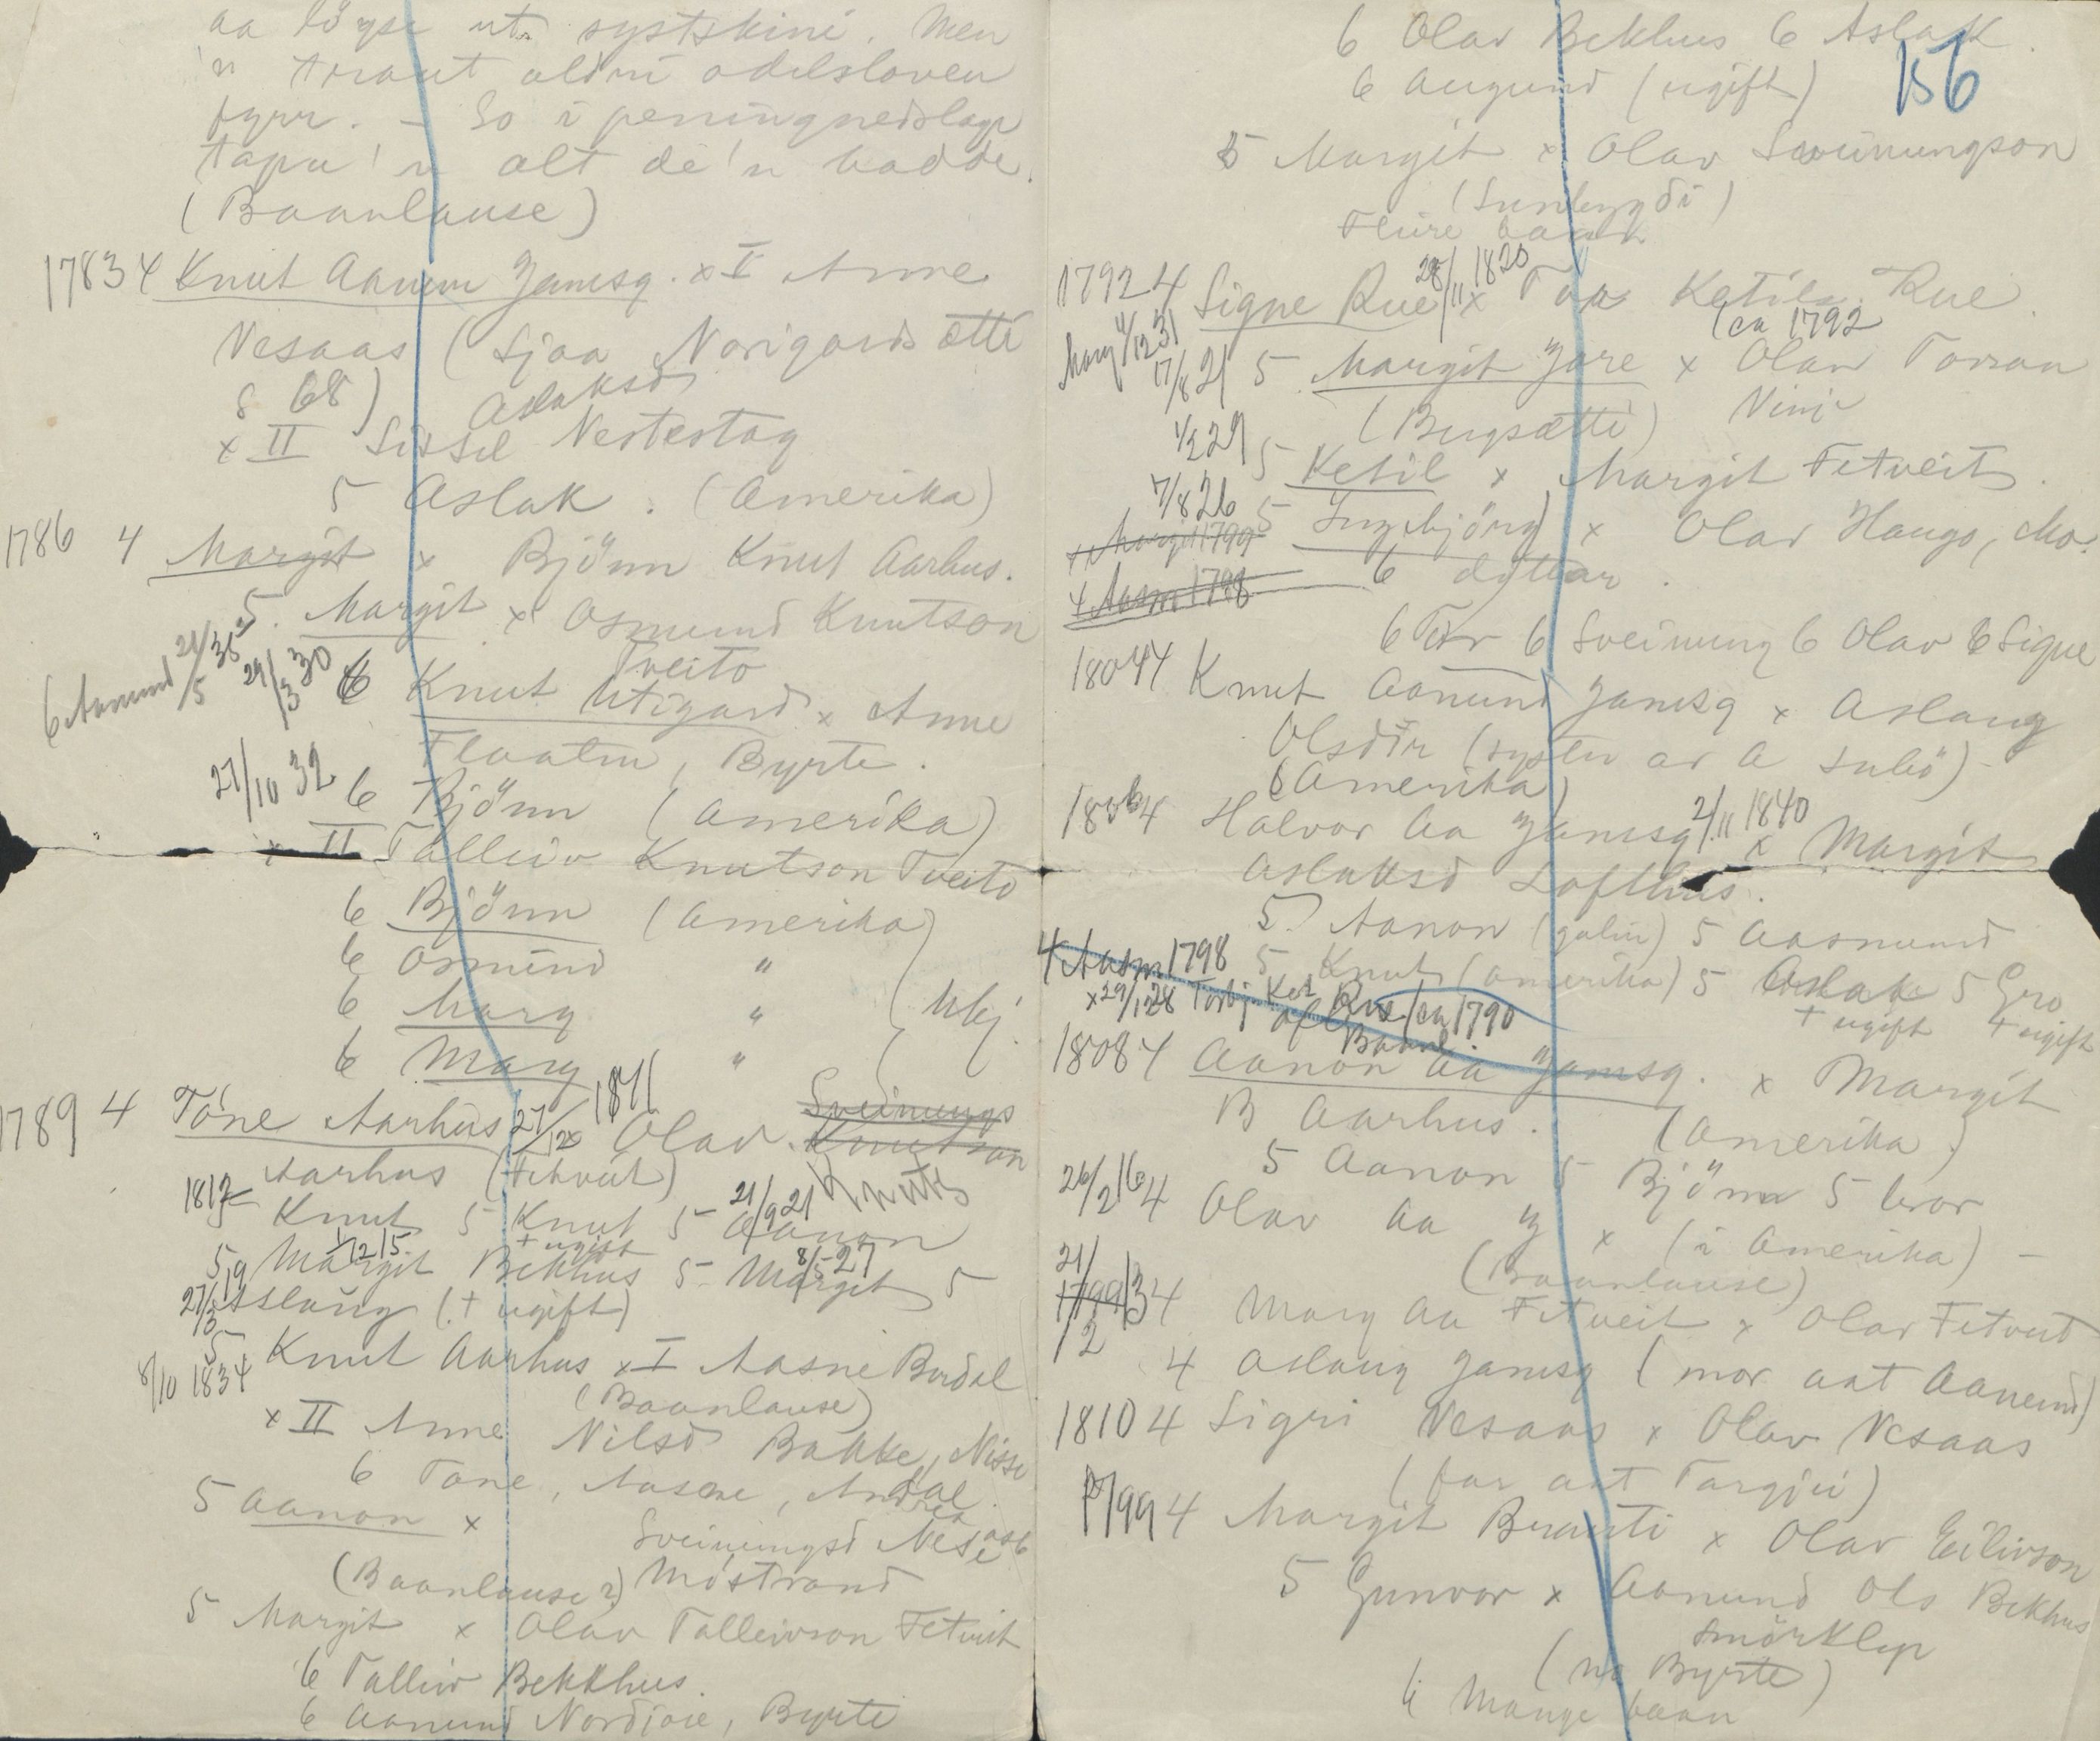 aa löyse ut systskini. Men
'n traut aldri odelsloven
fyrr. – So i peningnedslage
tapa 'n alt de 'n hadde.
(Baanlause)
1783 4 Knut Aanun Jamsg. x I Anne
Vesaas (Sjaa Norigards ætti
s 68)
Aslaksd
x II Sissel Vestestog
5 Aslak. (Amerika)
1786 4 Margit x Björn Knut Aarhus.
5. Margit x Osmund Knutson
Tveito
6 Aanund 21/5 36 29/3 30 6 Knut Utigard x Anne
Flaatin, Byrte.
27/10 32 6 Björn (Amerika)
x II Talleiv Knutson Tveito
6 Björn (Amerika)
6 Osmund "
6 Marg " Ukj.
6 Marg "
1789 4 Töne Aarhus 27/12 1811 Olav Sveinungs
Knutson
Knuts
Aarhus (Fetveit)
1812 Knut 5 Knut 5 21/9 21 Aanon
+ ugift
5 Margit Bekhus 5 Margit 8/5 27 5
27/3 19 Aslaug (+ ugift)
5 Knut Aarhus x I Aasne Berdal
8/10 1834 (Baanlause)
x II Anne Nilsd Bakke, Nisse
dal.
6 Tone, Aasne, Andrea
5 Aanon x Sveinungsd Nesè
(Baanlause?) Möstrand
5 Margit x Olav Talleivson Fetveit
6 Talleiv Bekkhus.
6 Aanund Nordjore, Byrte
6 Olav Bekhus 6 Aslak.
156
6 Augund (ugift)
5 Margit x Olav Sveinungson
(Sunbygdi)
Fleire baan
1792 4 Signe Rue 28/11 1820 x Tor Ketils. Rue.
(ca 1792
Marg 4/12 31
17/8 21 5 Margit Jore x Olav Torson
(Bergsætti) Vinje
1/2 29 5 Ketil x Margit Fetveit.
7/8 26 5 Ingebjörg x Olav Haugo, Mo.
4 Margit 1799
6 dyttar.
4 Aasm 1798
6 Tor 6 Sveinung 6 Olav 6 Signe
1804 4 Knut Aanund Jamsg x Aslaug
Olsdtr (syster av A Lubö) –
(Amerika)
1806 4 Halvor Aa Jamsg 2/11 1840 x Margit
Aslaksd Lofthus.
5 Aanon (galin) 5 Aasmund
5 Knut (Amerika) 5 Aslak 5 Gro
+ ugift + ugift
4 Aasm 1798
x 29/12 28 Torbj. Ket Rue (ca 1790
Baanl
1808 4 Aanon Aa Jamsg. x Margit
B Aarhus. (Amerika)
5 Aanon 5 Björn 5 bror
26/2 16 4 Olav Aa J x (i Amerika) –
(Baanlause)
21/2 13 1799 4 Marg Aa Fetveit x Olav Fetveit
4 Aslaug Jamsg (mor aat Aanund)
1810 4 Sigri Vesaas x Olav Vesaas
(far aat Targjei)
1799 4 Margit Brauti x Olav Eilivson
5 Gunvor x Aanund Ols Bekhus
Smörklep
(no Byrte)
6 Mange baan